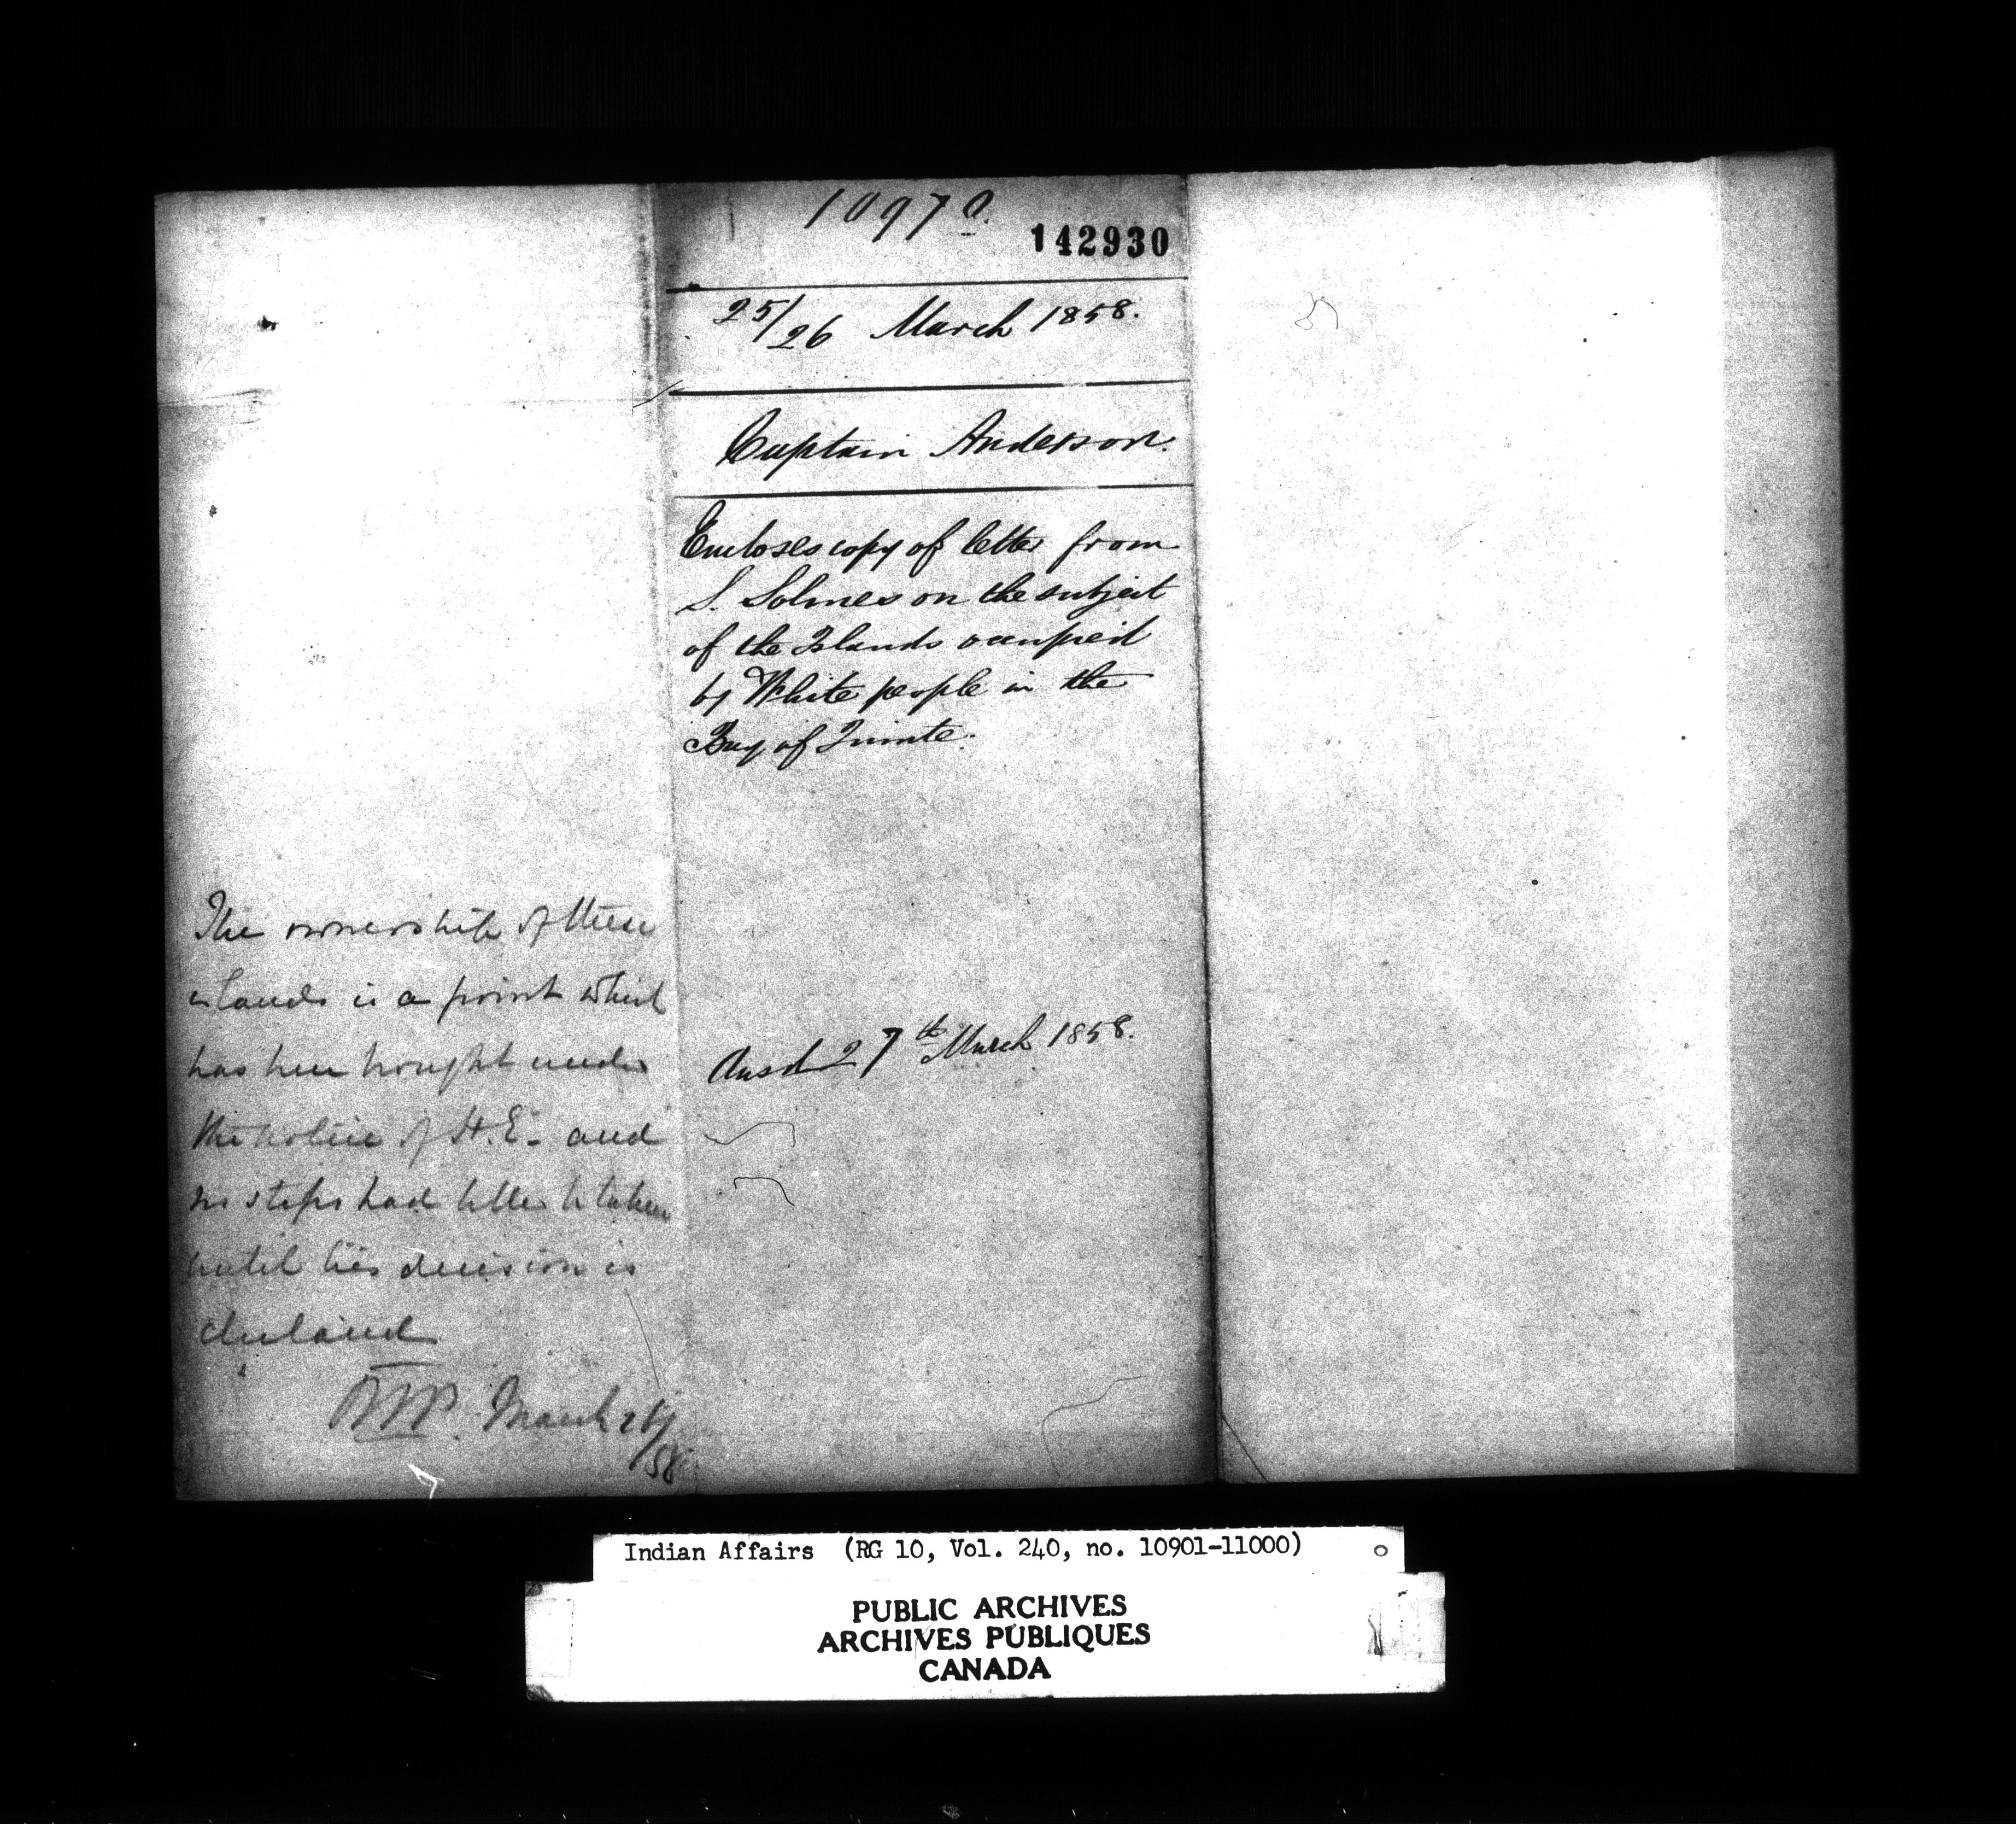 10970.
142930
25/26 March 1858.
Captain Anderson.
Encloses copy of letter from
S. Solmes on the subject
of the Islands occupied
by White people in the
Bay of Quinte.
Ansd 27th March 1858.
The ownership of these
islands is a point which
has been brought under
the notice of H.E. and
no steps had better be taken
until his decision is
declared
March 26/58
Indian Affairs (RG 10, Vol. 240, no. 10901-11000)
PUBLIC ARCHIVES
ARCHIVES PUBLIQUES
CANADA